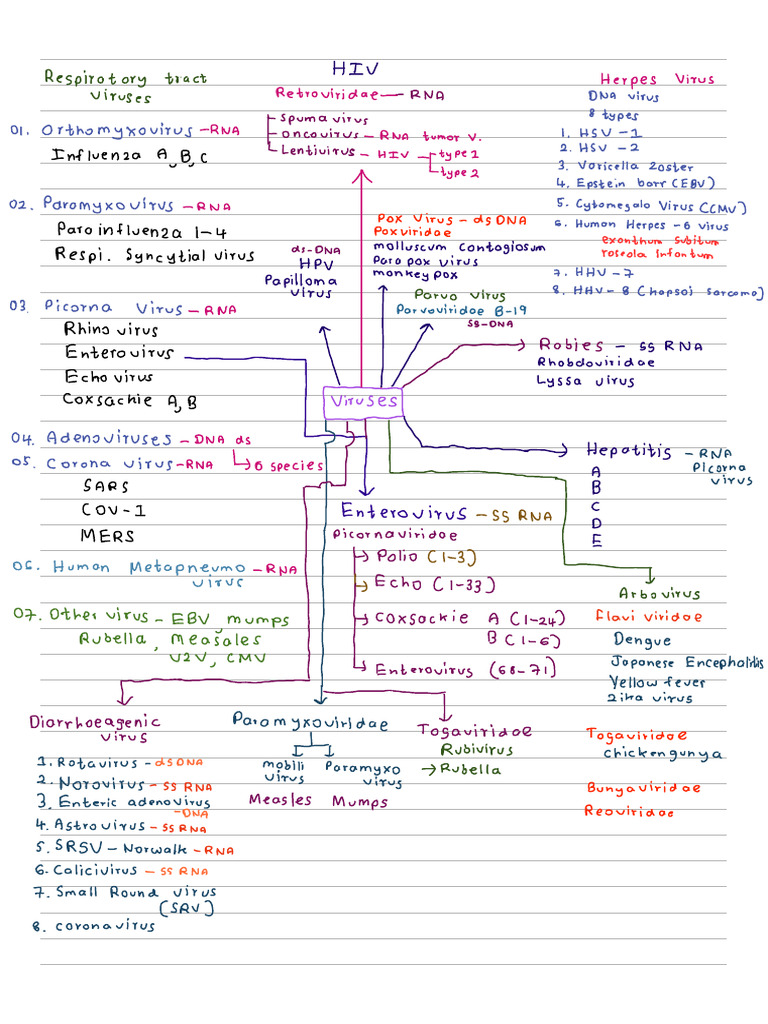 HIV
Respirotory tract
viruses
01. Orthomyxovirus - RNA
Influenza A, B, C
02. Paramyxovirus - RNA
Parainfluenza 1-4
Respi. Syncytial virus
03. Picorna Virus - RNA
Rhino virus
Enterovirus
Echo virus
Coxsackie A, B
04. Adenoviruses - DNA ds
05. Corona virus - RNA
6 species
SARS
COV-1
MERS
06. Human Metapneumo - RNA
virus
07. Other virus - EBV, mumps
Rubella, Measales
VZV, CMV
Retroviridae - RNA
Spuma virus
oncovirus - RNA tumor V.
Lentivirus - HIV
type 1
type 2
Herpes Virus
DNA virus
8 types
1. HSV - 1
2. HSV - 2
3. Varicella Zoster
4. Epstein barr (EBV)
5. Cytomegalo Virus (CMV)
6. Human Herpes - 6 virus
exanthum subitum
roseola infantum
7. HHV - 7
8. HHV - 8 (Kaposi sarcoma)
ds-DNA
HPV
Papilloma
virus
Pox Virus - ds DNA
Poxviridae
molluscum contagiosum
Para pox virus
monkey pox
Parvo virus
Parvoviridae B-19
SS-DNA
Rabies - SS RNA
Rhabdoviridae
Lyssa virus
Viruses
Hepatitis - RNA
Picorna
virus
A
B
C
D
E
Enterovirus - SS RNA
Picornaviridae
Polio (1-3)
Echo (1-33)
Coxsackie A (1-24)
B (1-6)
Enterovirus (68-71)
Arbovirus
Flavi viridae
Dengue
Japonese Encephalitis
Yellow fever
Zika virus
Togaviridae
chickengunya
Bunyaviridae
Reoviridae
Diarrhoeagenic
virus
1. Rotavirus - ds DNA
2. Norovirus - SS RNA
3. Enteric adenovirus
- DNA
4. Astrovirus - SS RNA
5. SRSV - Norwalk - RNA
6. Calicivirus - SS RNA
7. Small Round virus
(SRV)
8. coronavirus
Paramyxoviridae
mobili
virus
Paramyxo
virus
Measles
Mumps
Togaviridae
Rubivirus
→ Rubella